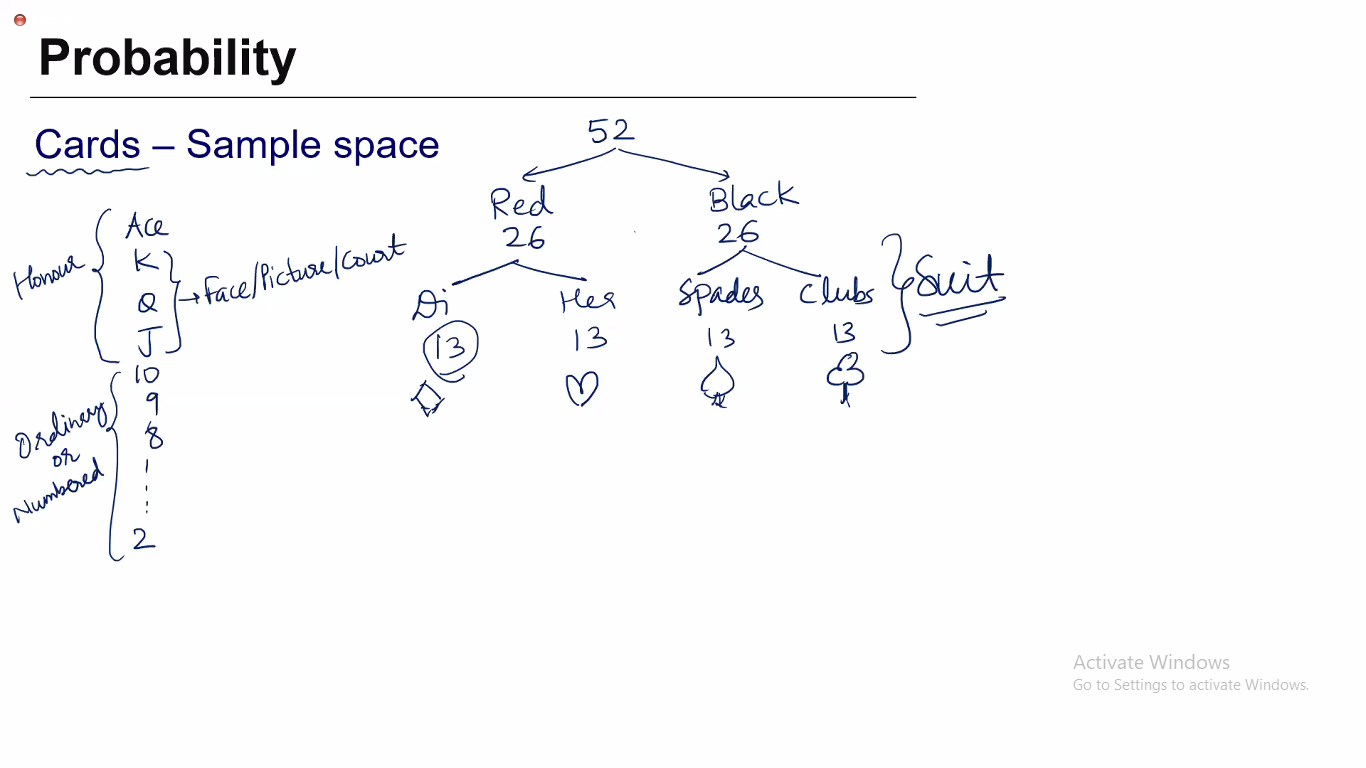 Probability
Cards – Sample space
52
Red
Black
26
26
Di
Her
Spades
Clubs
13
13
13
13
Suit
Honour
Ace
K
Q
J
Face/Picture/Court
10
9
8
2
Ordinery
or
Numbered
Activate Windows
Go to Settings to activate Windows.